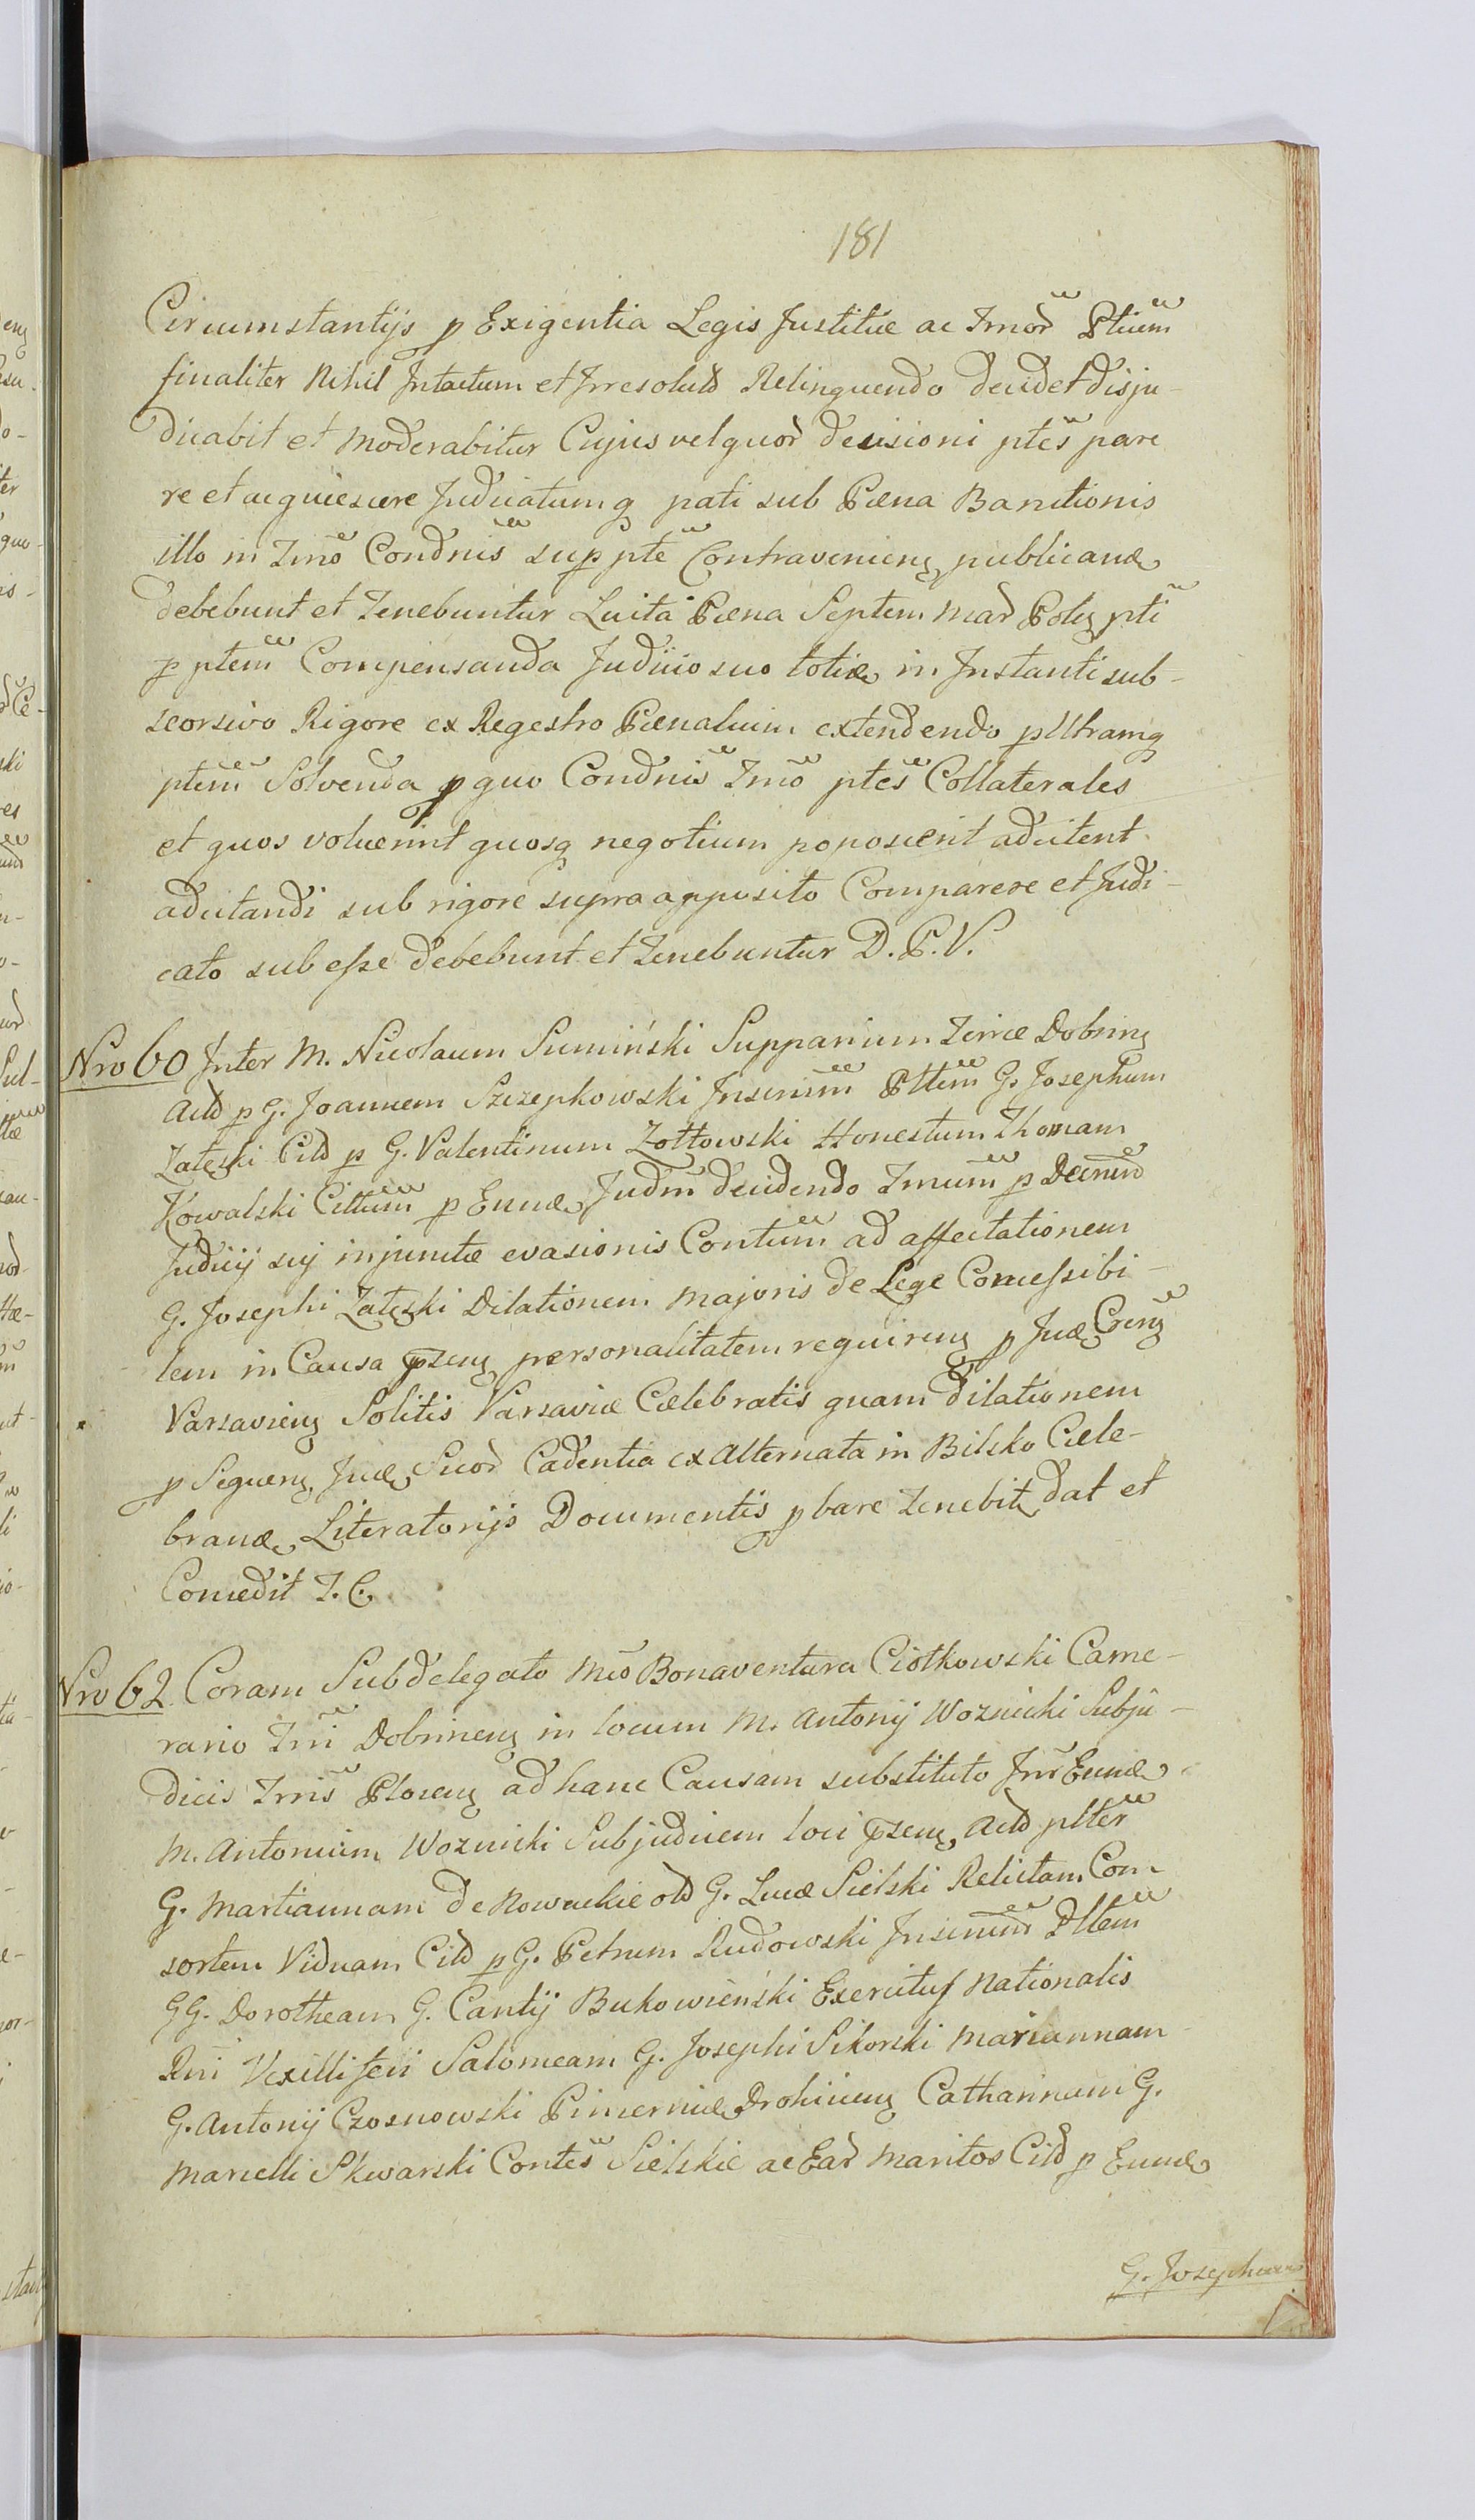 181
Circumstantijs p Exigentia Legis Justitiæ ac Tmor̃ Ptium̃
finaliter Nihil Intactum et Irresolutũ Relinquendo decidet disju-
dicabit et moderabitur Cujus vel quor̃ decisioni ptes̃ pare
re et acquiescere Judicatumq pati sub Pæna Banitionis
illo in Tmo Condnis̃ sup pte Contravenienȝ publicandæ
debebunt et Tenebuntur Luita Pæna Septem Mar̃ Polȝ pti
p ptem̃ Compensanda Judicio suo toties in Instanti sub-
scorsivo Rigore ex Regestro Pænalium extendendo p Utramq
ptem̃ Solvenda p quo Condnis̃ Tmo ptes̃ Collaterales
et quos voluerint quosq negotium poposcerit adcitent
adcitandi sub rigore supra apposito Comparere et Judi-
cato subesse debebunt et Tenebuntur D. P. V.
Nro 60 Inter M. Nicolaum Sumiński Supparium Terræ Dobrinȝ
Actũ p G. Joannem Szczepkowski Juserium̃ Pltem̃ G. Josephum
Załęski Citũ p G. Valentinum Żołtowski Honestum Thomam
Kowalski Cittum̃ p Eund Judm̃ decidendo Tmum̃ p Decretũ
Judicij sij injunctæ evasionis Contum̃ ad affectationem
G. Josephi Załęski Dilationem majoris de Lege Concessibi-
lem in Causa pzenȝ personalitatem requirenȝ p Jud Grenȝ
Varsavienȝ Solitis Varsaviæ Cælebratis quam dilationem
p Sequenȝ Jud Suor̃ Cadentia ex Alternata in Bilsko Cæle-
brand Literatorijs Documentis pbare Tenebit dat et
Concedit T. C.
Nro 62. Coram Subdelegato Mco Bonaventura Ciołkowski Came-
rario Tri Dobrinenȝ in locum M. Antonij Woznicki Subju-
dicis Trris Plocenȝ ad hanc Causam substituto Inr Eund
M. Antonium Woznicki Subjudicem loci pzenȝ Actũ plter̃
G. Martiannam de Nowackie olũ G. Lucæ Sielski Relictam Con-
sortem Viduam Citũ p G. Petrum Rudowski Jnserium̃ Pltem̃
GG. Dorotheam G. Cantij Bukowieński Exercitus Nationalis
Rni Vexilliferi Salomeam G. Josephi Sikorski Mariannam
G. Antonij Czosnowski Pincernid Drohicenȝ Catharinam G.
Marcelli Skwarski Contes̃ Sielskie ac Ear̃ Maritos Citũ p Eund
G. Josephum